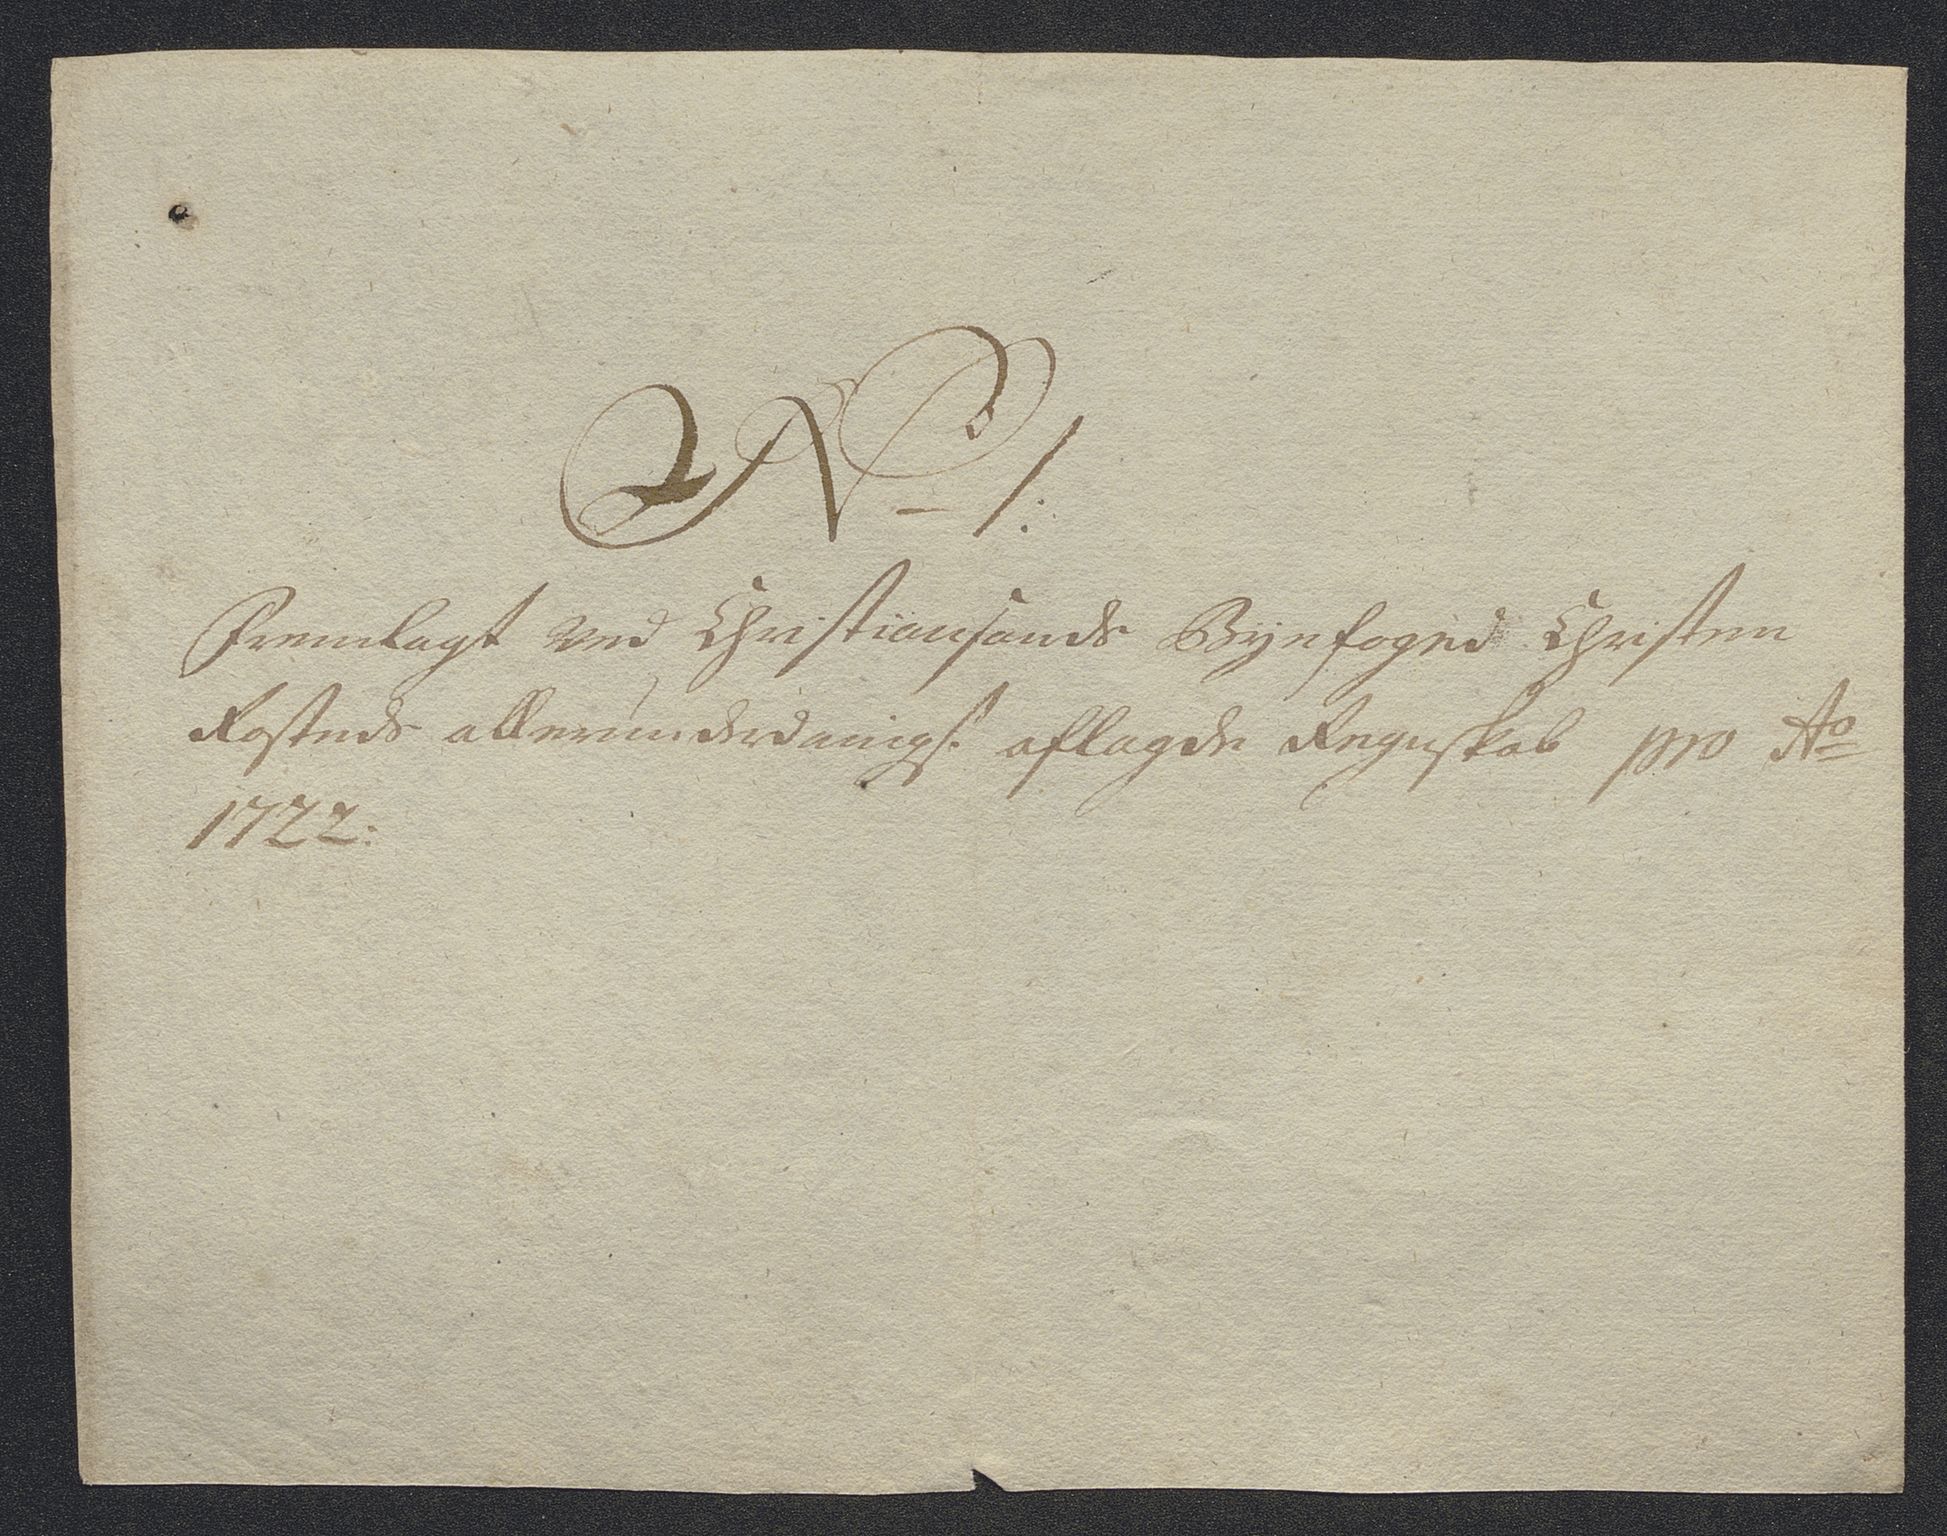 No 1:
Fremlagt ved Christiansands Byefoged Christen
Rosteds allerunderdanigst aflagde Regnskab pro Ao
1722: